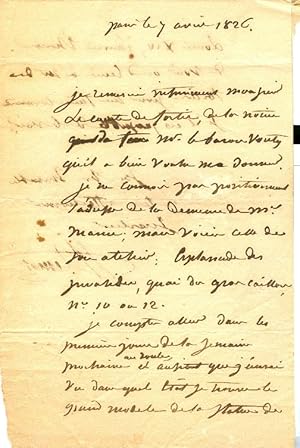 paris le 7 avril 1826.
je remercie infiniment monsieur
Le comte de de la notice
Mr. le baron
qu'il a bien voulu me donner.
je ne connois pas positivement
l'adresse de la Demeure de Mr.
mais voici celle de
son atelier: Esplanade des
invalides, quai du gros caillou,
No. 10 ou 12.
je compte aller dans les
premiers jours de la semaine
prochaine et que j'aurai
vu dans quel état se trouve le
grand modele de la Statue de